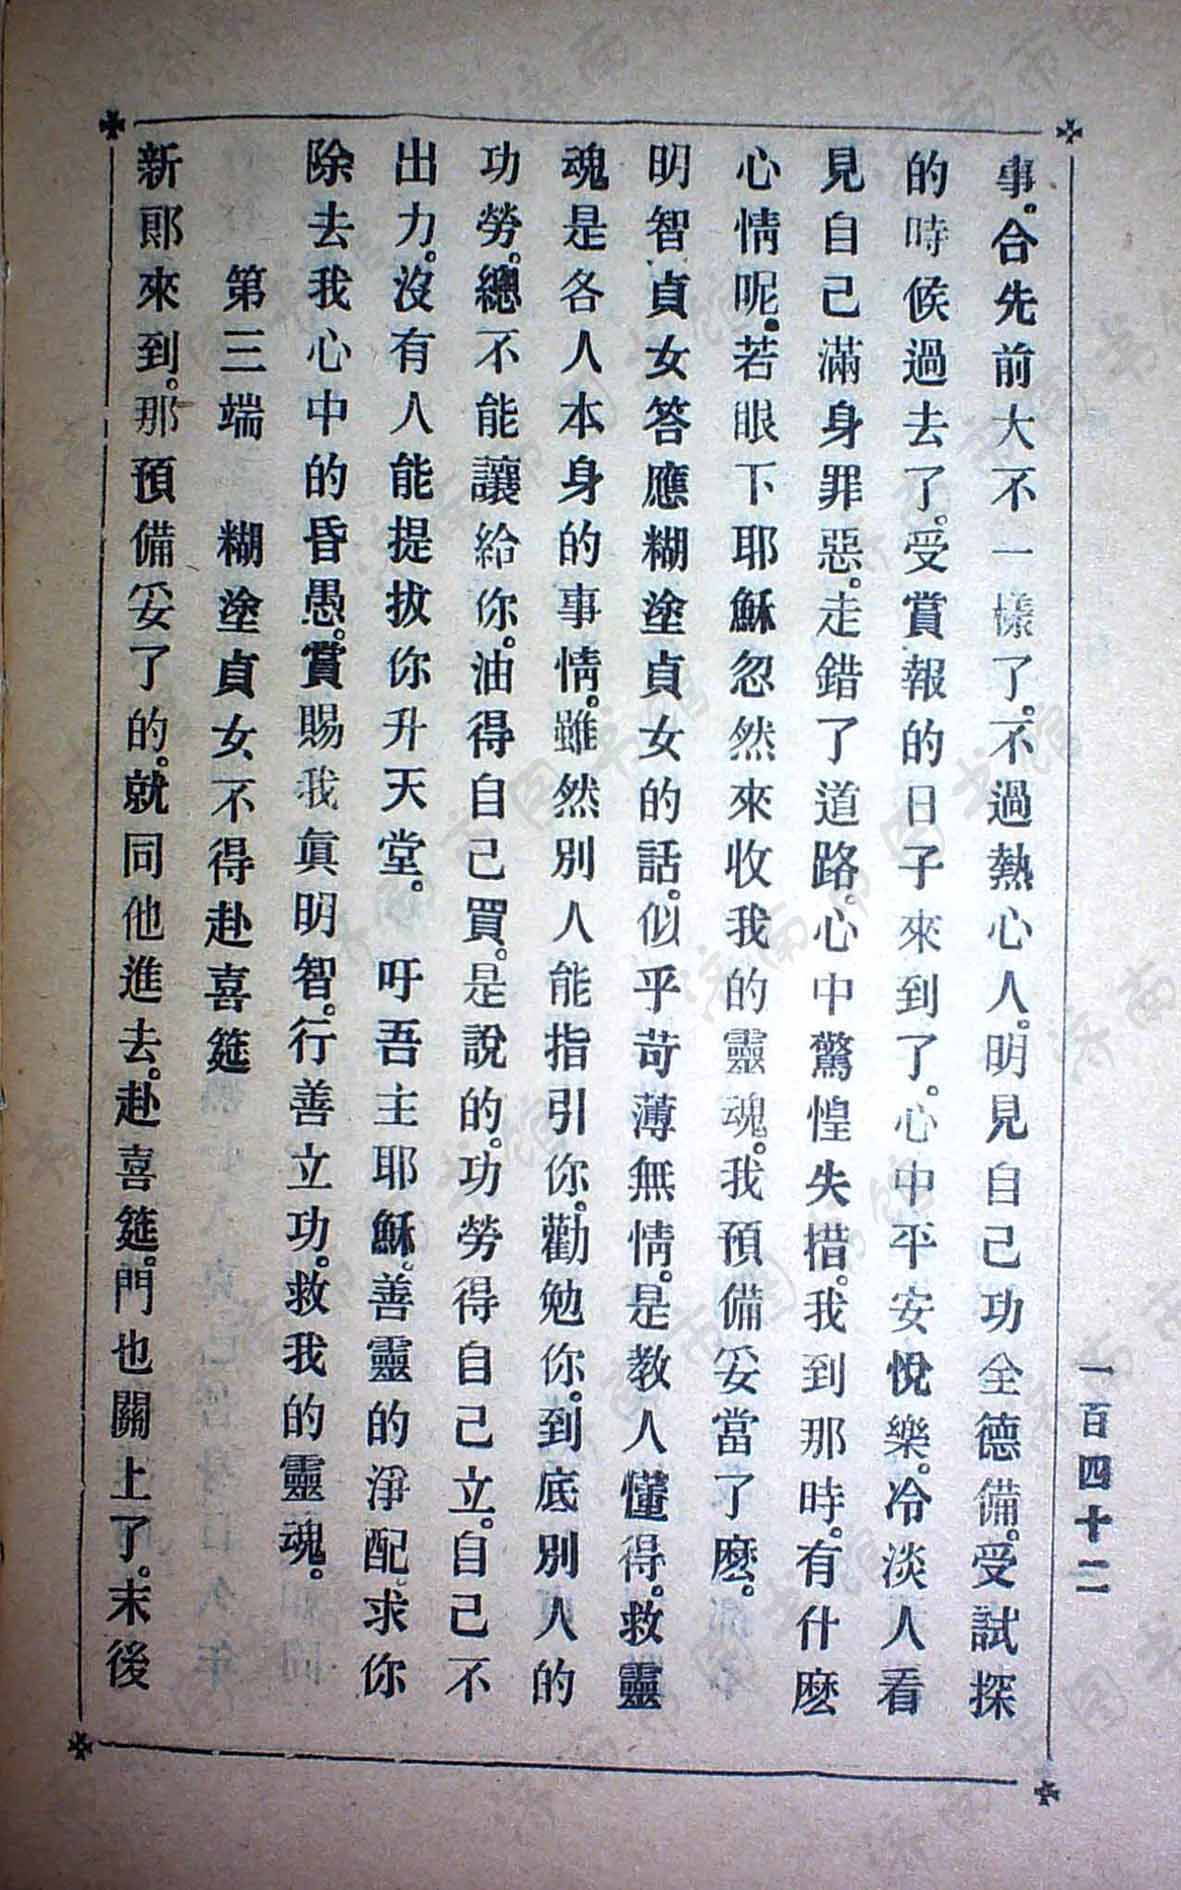 事。合先前大不一樣了。不過熱心人。明見自己功全德備。受試探
的時候過去了。受賞報的日子來到了。心中平安悅樂。冷淡人看
見自己滿身罪惡。走錯了道路。心中驚惶失措。我到那時。有什麽
心情呢。若眼下耶穌忽然來收我的靈魂。我預備妥當了麽。
明智貞女答應糊塗貞女的話。似乎苛薄無情。是教人懂得。救靈
魂是各人本身的事情。雖然別人能指引你。勸勉你。到底別人的
功勞。總不能讓給你。油得自己買。是說的。功勞得自己立。自己不
出力。沒有人能提拔你升天堂。 吁吾主耶穌。善靈的淨配。求你
除去我心中的昏愚。賞賜我眞明智。行善立功。救我的靈魂。
第三端 糊塗貞女不得赴喜筵
新郞來到。那預備妥了的。就同他進去。赴喜筵。門也關上了。末後
一百四十二